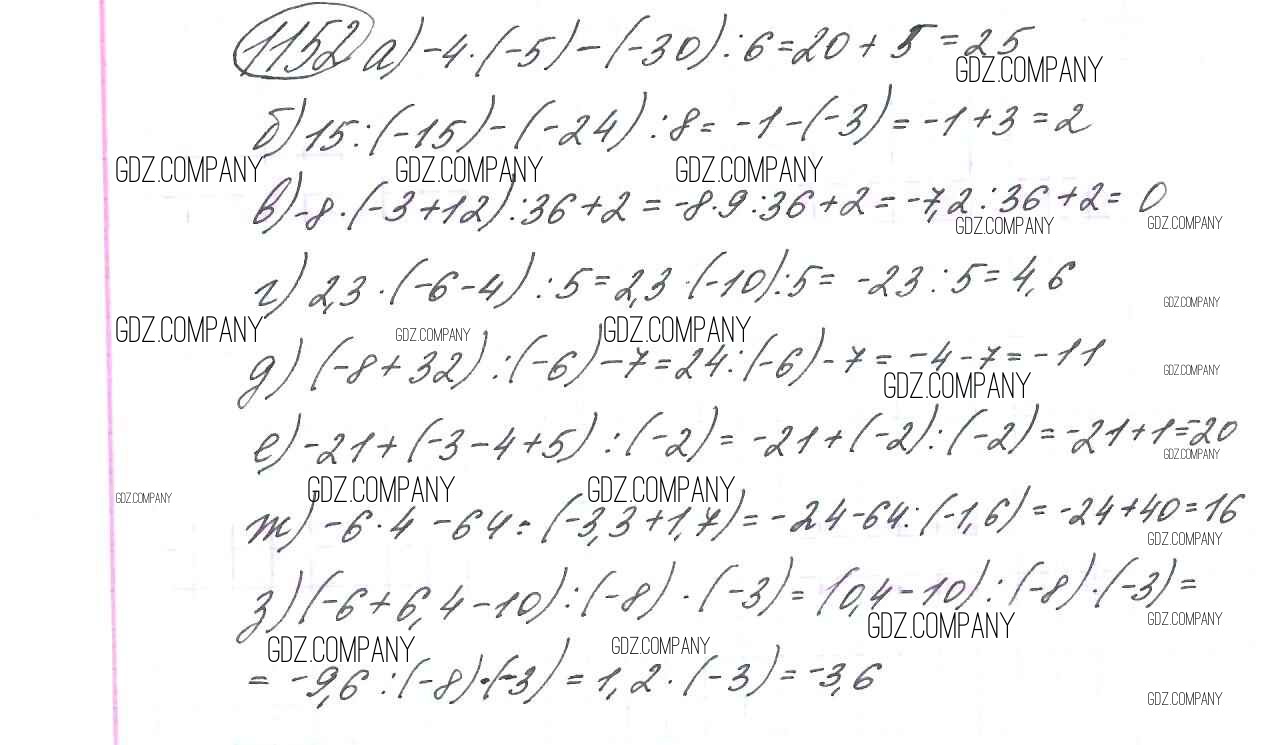 1152 а) -4·(-5)-(-30):6=20+5=25
GDZ.COMPANY
б) 15:(-15)-(-24):8=-1-(-3)=-1+3=2
GDZ.COMPANY GDZ.COMPANY GDZ.COMPANY
в) -8·(-3+12):36+2=-8·9:36+2=-7,2:36+2=0
GDZ.COMPANY GDZ.COMPANY
г) 2,3·(-6-4):5=2,3·(-10):5=-23:5=4,6
GDZ.COMPANY
GDZ.COMPANY GDZ.COMPANY GDZ.COMPANY
д) (-8+32):(-6)-7=24:(-6)-7=-4-7=-11
GDZ.COMPANY
GDZ.COMPANY
е) -21+(-3-4+5):(-2)=-21+(-2):(-2)=-21+1=-20
GDZ.COMPANY
GDZ.COMPANY GDZ.COMPANY GDZ.COMPANY
ж) -6·4-64:(-3,3+1,7)=-24-64:(-1,6)=-24+40=16
GDZ.COMPANY
з) (-6+6,4-10):(-8)·(-3)=(0,4-10):(-8)·(-3)=
GDZ.COMPANY GDZ.COMPANY
GDZ.COMPANY GDZ.COMPANY
=-9,6:(-8)·(-3)=1,2·(-3)=-3,6
GDZ.COMPANY